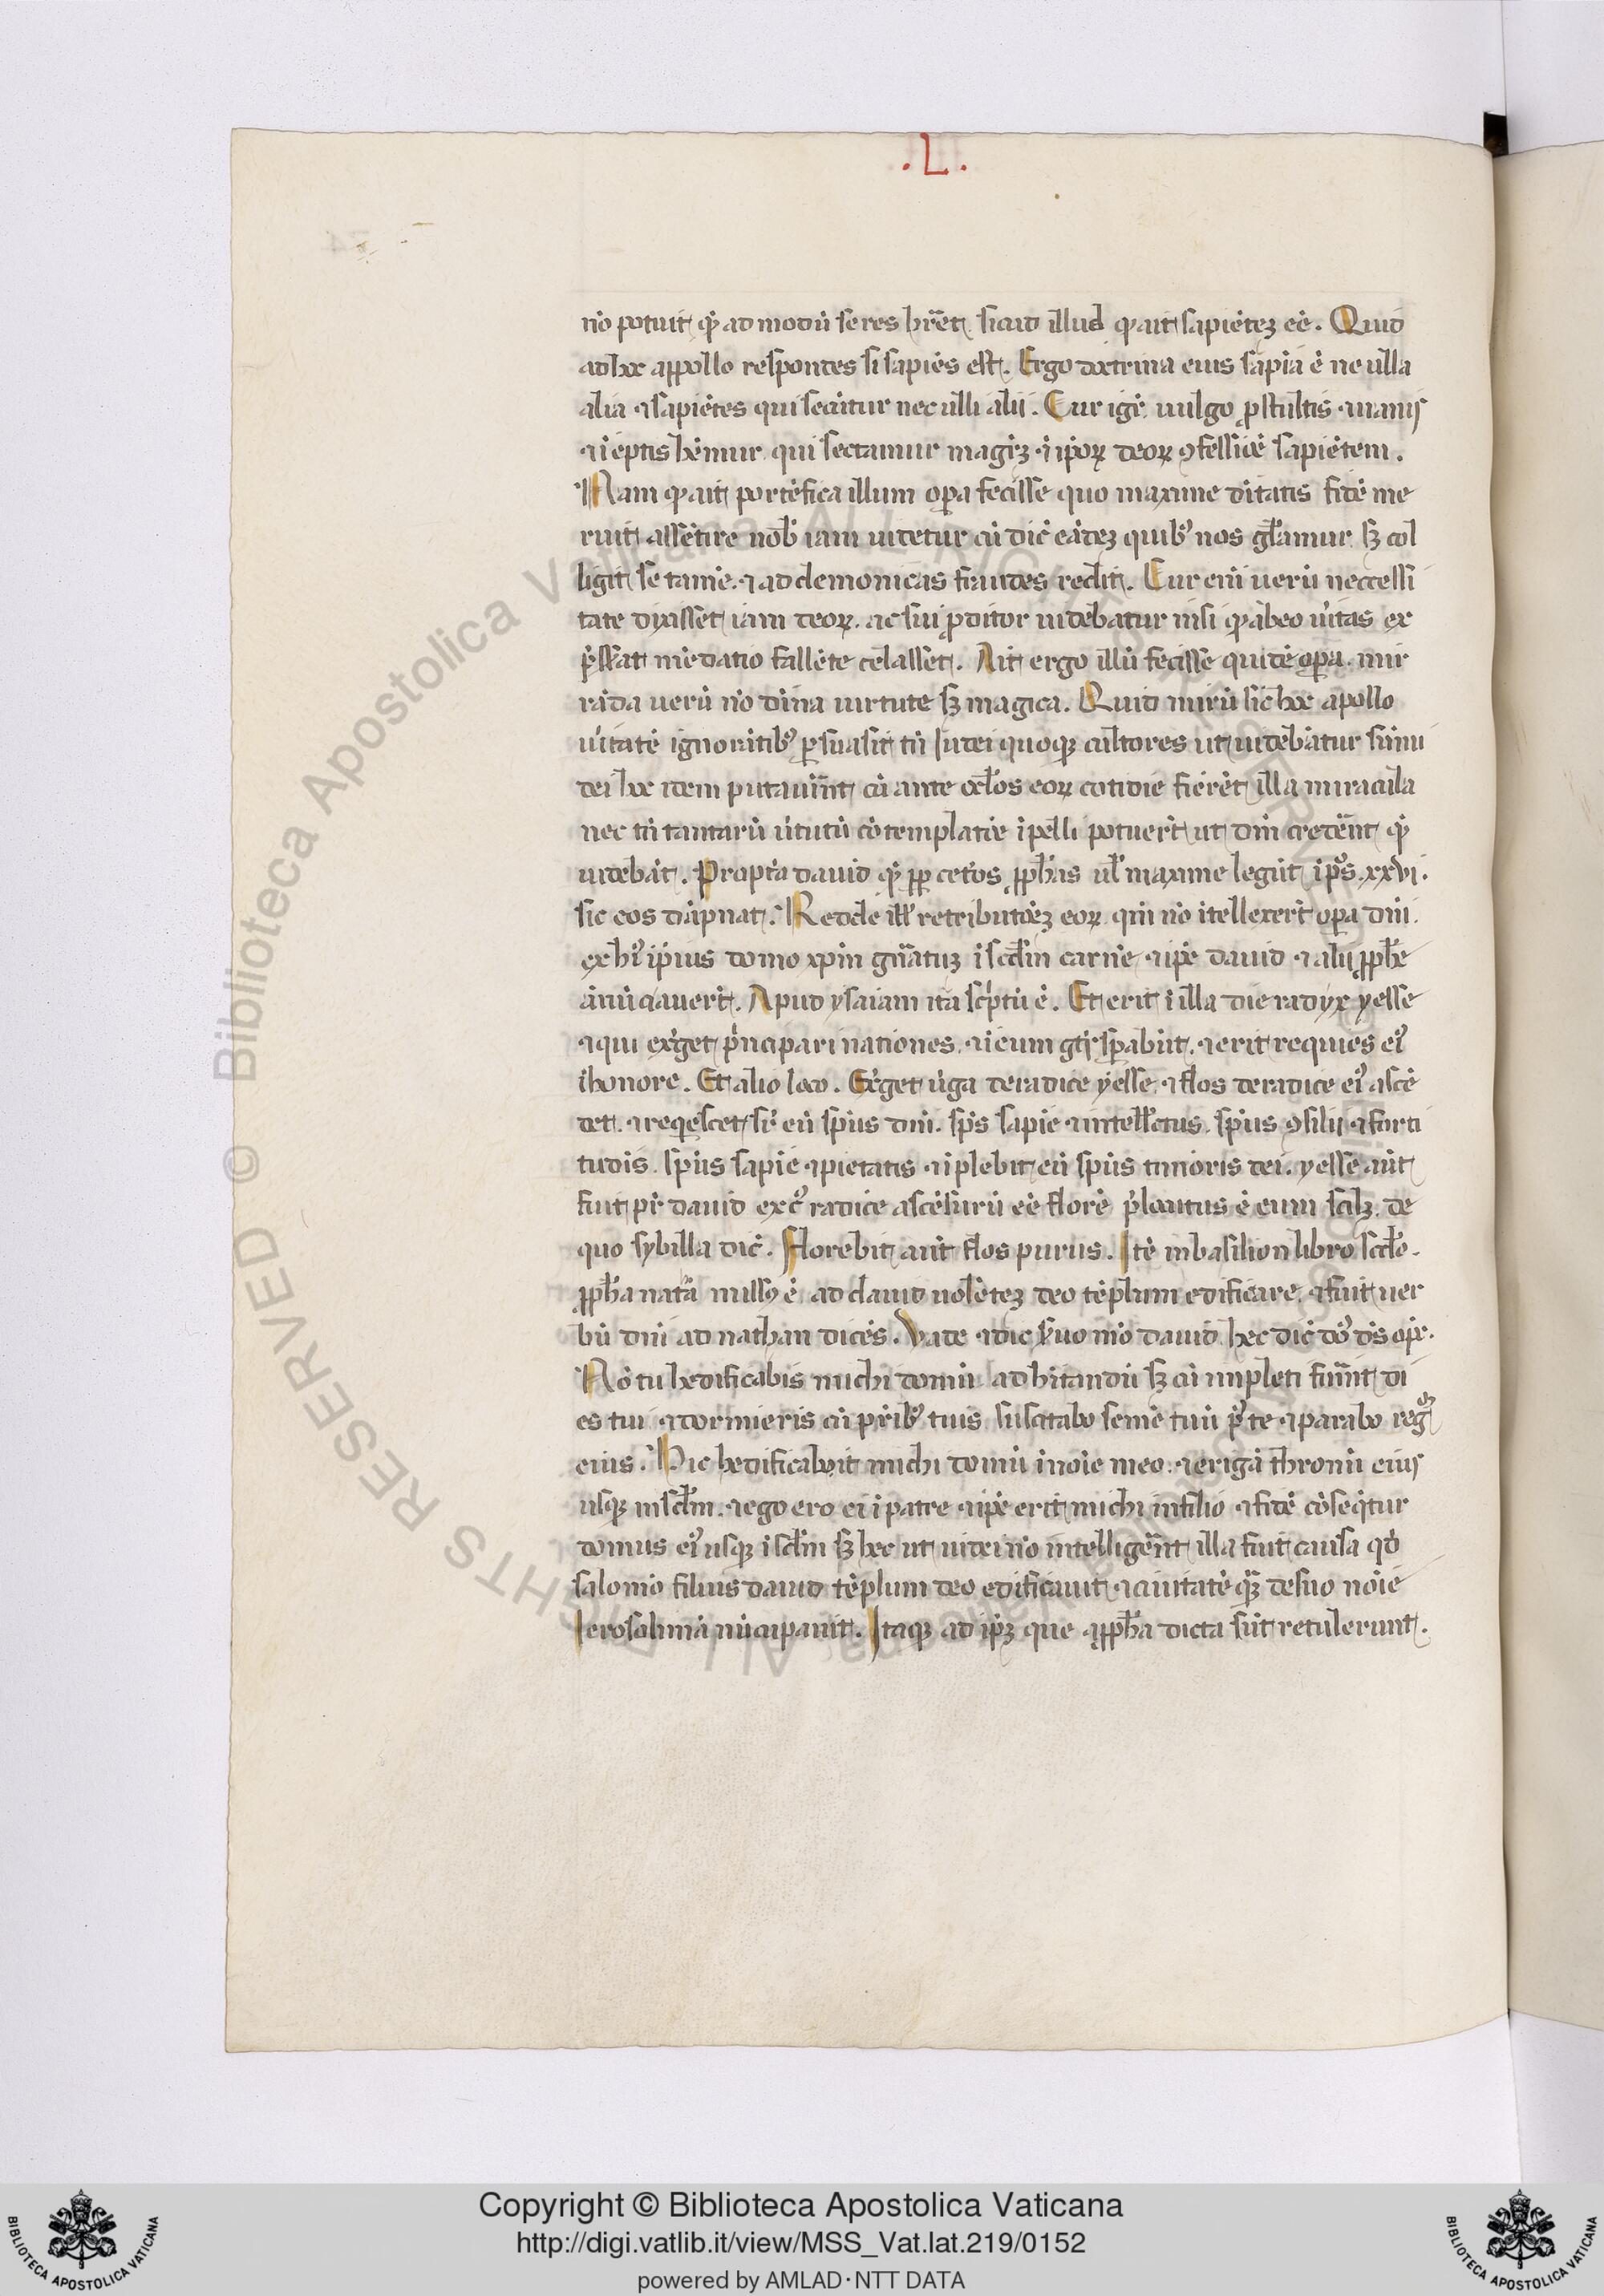 .L.
nō potuit q̄ ad modū se res hr̄et. sicud illud q̄ ait sapiētez eē. Quid
ad hec appollo respondes si sapiēs est. Ergo doctrina eius sapīa ē ne ulla
alia ⁊ sapiētes qui secūtur nec ulli alii. Cur igr̄ uulgo ꝓ stultis ⁊ uanis
⁊ īeptis hēmur qui sectamur magr̄ꝫ ī ipōꝝ deoꝝ ꝯfessiōe sapiētem.
Nam q̄ ait portēfica illum oꝑa fecisse quo maxime dītatis fidē me
ruit assētire nob̄ iam uidetur cū dic̄ eādeꝫ quibꝰ nos gl̄amur sꝫ col
ligit se tamē. ⁊ ad demonicas fraudes redit. Cur enī uerū neccessi
tate dixisset iam deoꝝ. ac sui ꝓditor uidebatur nisi q̄ ab eo ūitas ex
p̄ssat mēdatio fallēte celasset. Ait ergo illū fecisse quidē oꝑa. mir
rāda uerū nō dīna uirtute sꝫ magica. Quid mirū si hec apollo
ūitatē ignorātibꝰ ꝑsuasit cū Iudei quoqꝫ cultores ut uidebātur sūmi
dei hec idem putauer̄nt cū ante ocl̄os eoꝝ cotidie fierēt illa miracula
nec tn̄ tantarū ūtutū cōtemplatiōe īpelli potuer̄t ut dm̄ crederēt q̄
uidebāt. Propt̄a dauid q̄ p̄ p̄ ceteros ꝓph̄as ul̄ maxime legūt ip̄ōs. xxvi.
sic eos dāpnat. Redde ill̄ retributōeꝫ eoꝝ qm̄ nō ītellexer̄t oꝑa dn̄i.
ex hīꝰ ipīus domo xp̄m gn̄atuꝫ ī scd̄m carnē ⁊ ip̄e dauid ⁊ alii ꝓph̄e
ānūciauer̄t. Apud ysaiam ita sc̄ptū ē. Et erit ī illa die radyx yesse
⁊ qui exꝰget p̄ncipari nationes. ⁊ ī eum gt̄s sꝑabūt. ⁊ erit requies eīꝰ
ī honore. Et alio loco. Exꝰget ūga de radice yesse. ⁊ flos de radice eīꝰ ascē
det. ⁊ reqͥescet sr̄ eū spūs dn̄i. sp̄s sapiē ⁊ intell̄ectus. spūs ꝯsilii ⁊ forti
tudīs. spūs sapiē ⁊ pietatis ⁊ īplebit eū spūs timoris dei. yesse aūt
fuit pr̄ dauid ex cꝰ radice ascēsurū eē florē p̄locutus ē eum scilꝫ. de
quo sybilla dic̄. Florebit aūt flos purus. Itē in basilion libro scd̄o.
ꝓph̄a natā missꝰ ē ad dauid uolēteꝫ deo tēplum edificare. ⁊ fuit uer
bū dn̄i ad nathan dicēs. Vade ⁊ dic s̄uo m̄o dauid. hec dic̄ dōs ds̄ op̄e.
Nō tu hedificabis michi domū ad hītandū sꝫ cū impleti fuer̄nt di
es tui ⁊ dormieris cū pr̄ibꝰ tuis suscitabo semē tuū p̄ te ⁊ parabo regꝫ
eius. Hic hedificabit michi domū ī noīe meo. ⁊ erigā thronū eius
usqꝫ in scl̄m. ⁊ ego ero ei ī patre ⁊ ip̄e erit michi in filio ⁊ fidē cōseqͥtur
domus eīꝰ usqꝫ ī scl̄m sꝫ hec ut iudei nō intelliger̄nt illa fuit causa qd̄
salomō filius dauid tēplum deo edificauit ⁊ ciuitatē qͣꝫ de suo noīe
Ierosolimā nūcupauit. Itaqꝫ ad ip̄ꝫ que a ꝓph̄a dicta sūt retulerunt.
© Biblioteca Apostolica Vaticana
ALL RIGHTS RESERVED
BIBLIOTECA APOSTOLICA VATICANA
Copyright © Biblioteca Apostolica Vaticana
http://digi.vatlib.it/view/MSS_Vat.lat.219/0152
powered by AMLAD · NTT DATA
BIBLIOTECA APOSTOLICA VATICANA